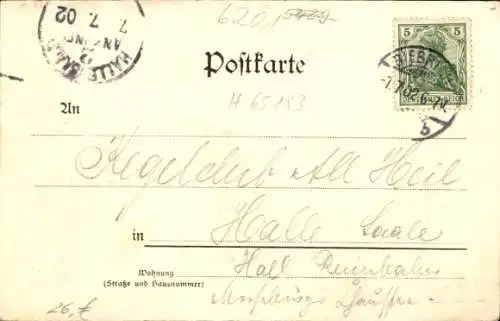 620,
HALLE (SAALE)
7. 7. 02
Postkarte
5 5
DEUTSCHES REICH
BIEBRICH
-7.7.02. 6-7N.
H 65183
An
Kegelclub All Heil
Halle Saale
in
Wohnung
(Straße und Hausnummer)
Merseburger Chaussee
26,€